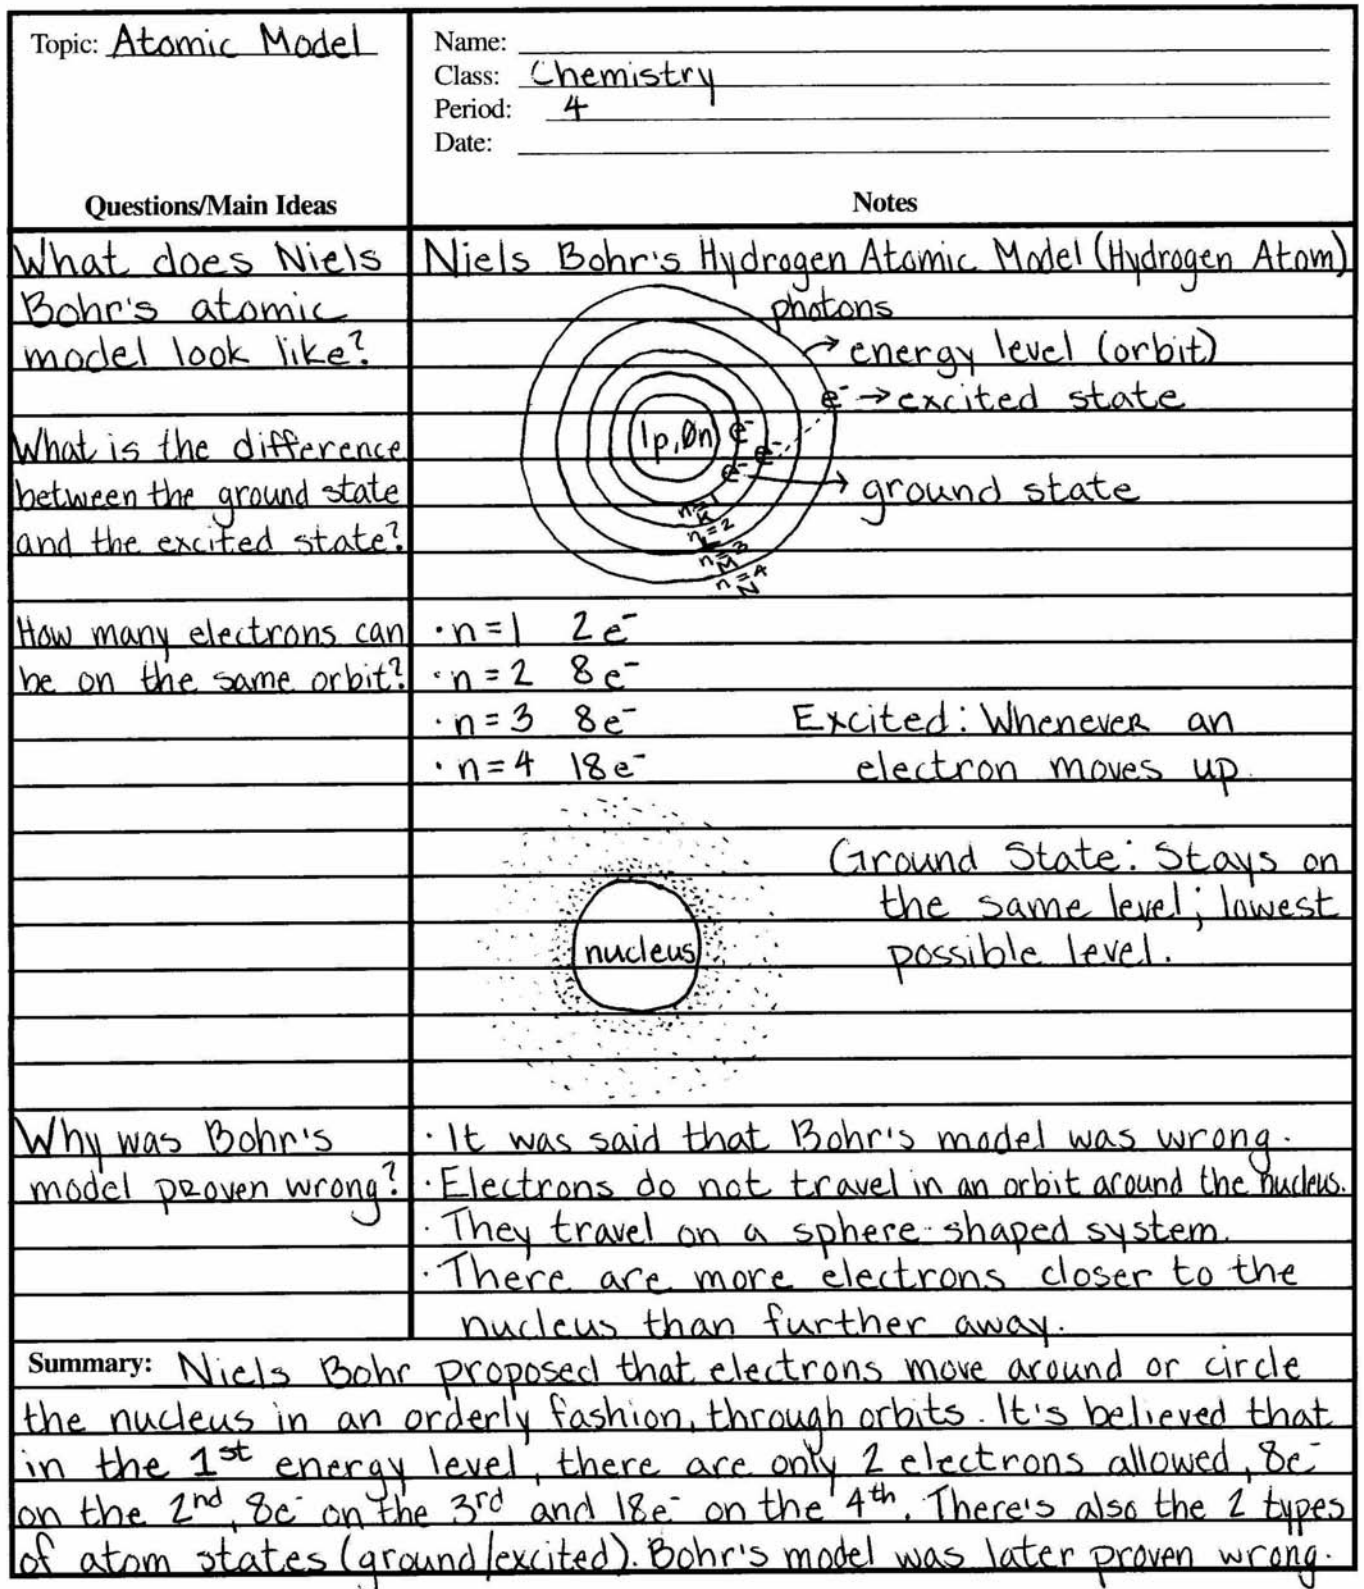 Topic: Atomic Model
Name:
Class: Chemistry
Period: 4
Date:
Questions/Main Ideas
Notes
What does Niels
Bohr's atomic
model look like?
What is the difference
between the ground state
and the excited state?
How many electrons can
be on the same orbit?
Niels Bohr's Hydrogen Atomic Model (Hydrogen Atom)
photons
→ energy level (orbit)
e⁻ → excited state
1p, 0n
e⁻
e⁻
e⁻
→ ground state
n=1
K
n=2
L
n=3
M
n=4
N
· n=1 2e⁻
· n=2 8e⁻
· n=3 8e⁻
· n=4 18e⁻
Excited: Whenever an
electron moves up.
Ground State: Stays on
the same level; lowest
possible level.
nucleus
Why was Bohr's
model proven wrong?
· It was said that Bohr's model was wrong.
· Electrons do not travel in an orbit around the nucleus.
· They travel on a sphere-shaped system.
· There are more electrons closer to the
nucleus than further away.
Summary: Niels Bohr proposed that electrons move around or circle
the nucleus in an orderly fashion, through orbits. It's believed that
in the 1st energy level, there are only 2 electrons allowed, 8e⁻
on the 2nd, 8e⁻ on the 3rd and 18e⁻ on the 4th. There's also the 2 types
of atom states (ground/excited). Bohr's model was later proven wrong.